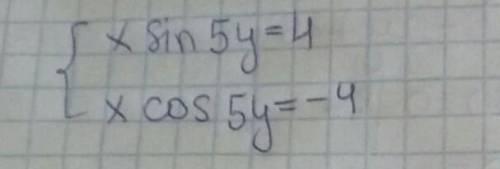 x sin 5y = 4
x cos 5y = -4